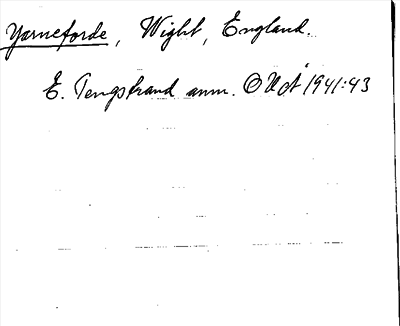 Yarneforde, Wight, England.
E. Tengstrand anm. OUÅ 1941:43